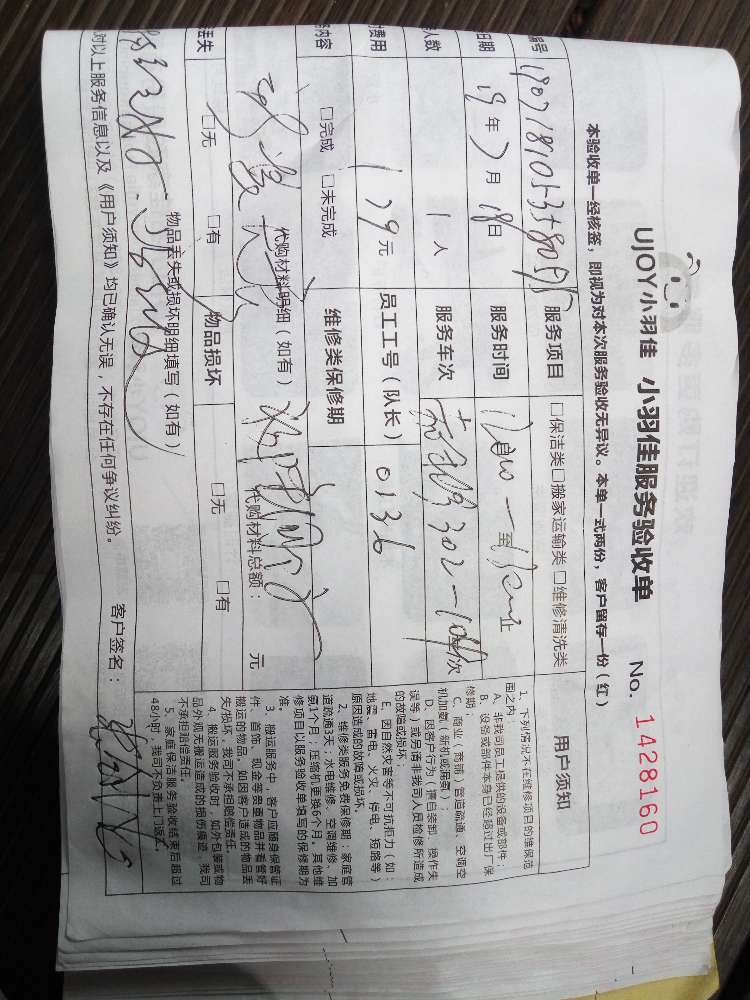 UJOY小羽佳 小羽佳服务验收单 No. 1428160
本验收单一经核签，即视为对本次服务验收无异议。本单一式两份，客户留存一份（红）
编号
服务项目 □保洁类□搬家运输类□维修清洗类
日期 19年7月18日 服务时间 至 止
人数 1人 服务车次 次
费用 179元 员工工号（队长） 0136
内容 □完成 □未完成 维修类保修期
代购材料明细（如有） 代购材料总额： 元
丢失 □无 □有 物品损坏 □无 □有
物品丢失或损坏明细填写（如有）
对以上服务信息以及《用户须知》均已确认无误，不存在任何争议纠纷。 客户签名：
用户须知
1、下列情况不在维修项目的维保范
围之内：
A、非我司员工提供的设备或部件；
B、设备或部件本身已经超过出厂保
修期；
C、商业（商铺）管道疏通、空调空
机加氟（新机或漏氟）；
D、因客户行为（擅自装卸、操作失
误等）或另请非我司人员检修所造成
的故障或损坏；
E、因自然灾害等不可抗拒力（如：
地震、雷电、火灾、停电、短路等）
原因造成的故障或损坏。
2、维修类服务免费保修期：家庭管
道疏通3天；水电维修、空调维修、加
氟1个月；压缩机更换6个月。其他维
修项目以服务验收单填写的保修期为
准。
3、搬运服务中，客户应随身保管证
件、首饰、现金等贵重物品并看管好
搬运的物品。如因客户造成的物品丢
失/损坏，我司不承担赔偿责任。
4、搬运服务验收时，如外包装或物
品外观无搬运造成的损伤痕迹，我司
不承担赔偿责任。
5、家庭保洁服务验收结束后超过
48小时，我司不负责上门返工。